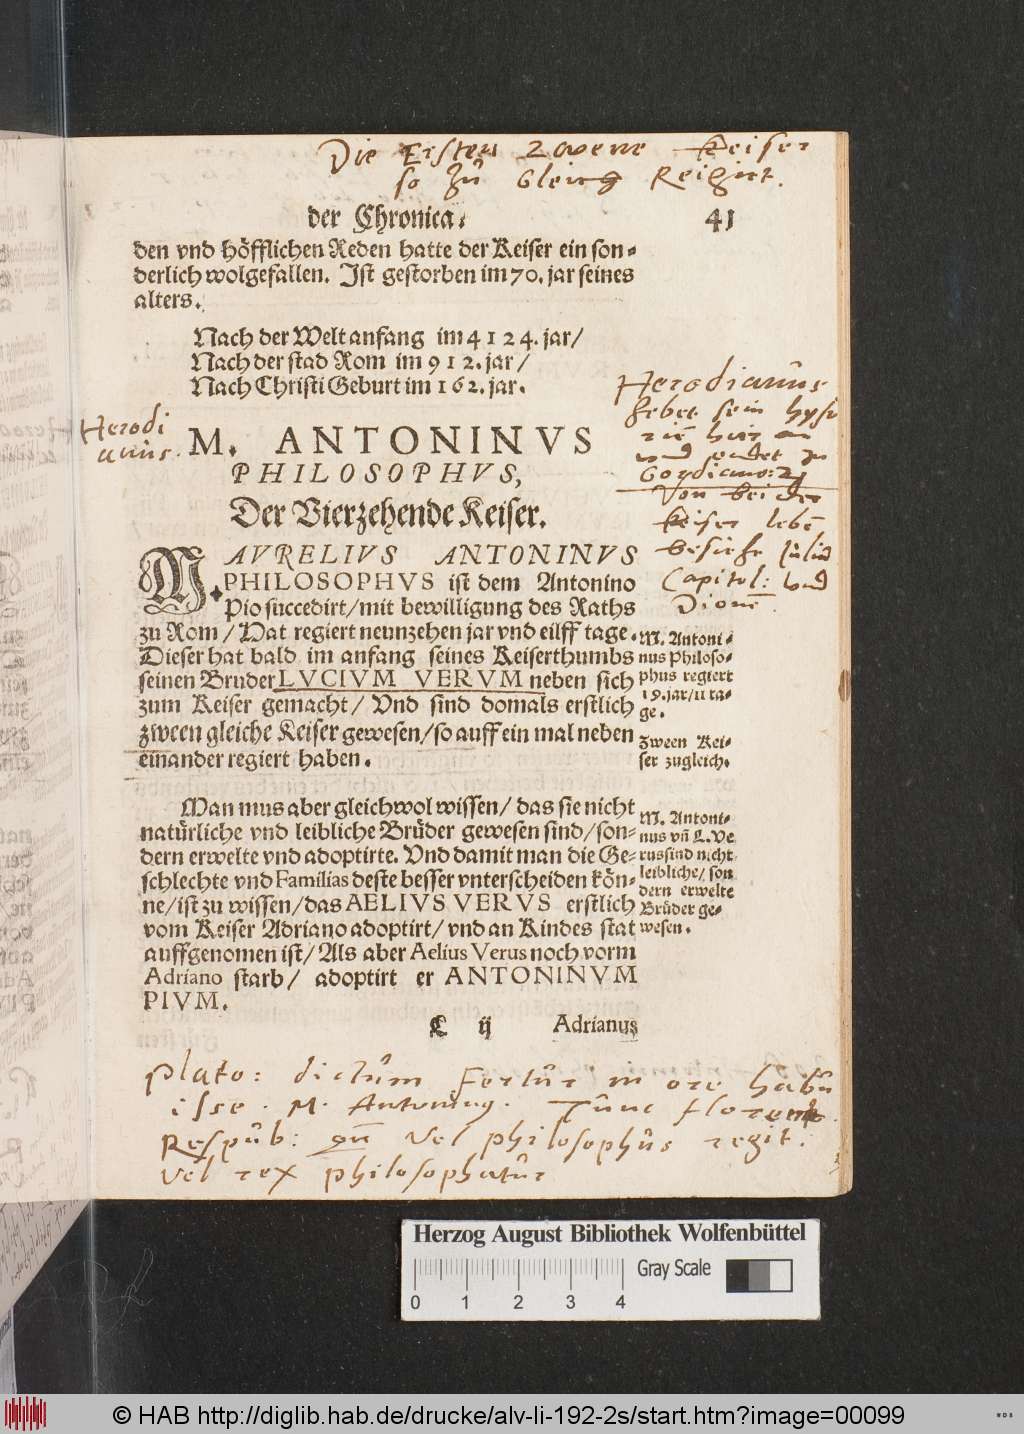 Die Ersten Zweene Keiser
so zu Gleich Reigirt.
der Chronica. 41
den vnd höfflichen Reden hatte der Keiser ein son-
derlich wolgefallen. Ist gestorben im 70. jar seines
alters.
Nach der Welt anfang im 4124. jar/
Nach der stad Rom im 912. jar/
Nach Christi Geburt im 162. jar.
Herodi
anus.
Herodianus
hebet sein hysto
vnd endet in
Gordiano: 2
Von beider
Keiser leben
besiehe Julium
Capitol: vnd
Dione
M. ANTONINVS
PHILOSOPHVS,
Der Vierzehende Keiser.
M. AVRELIVS ANTONINVS
PHILOSOPHVS ist dem Antonino
Pio succedirt/ mit bewilligung des Raths
zu Rom/ Hat regiert neunzehen jar vnd eilff tage.
Dieser hat bald im anfang seines Keiserthumbs
seinen Bruder LVCIVM VERVM neben sich
zum Keiser gemacht/ Vnd sind domals erstlich
zween gleiche Keiser gewesen/ so auff ein mal neben
einander regiert haben.
M. Antoni-
nus Philoso-
phus regiert
19. jar/ 11 ta-
ge.
Zween Kei-
ser zugleich.
Man mus aber gleichwol wissen/ das sie nicht
natürliche vnd leibliche Brüder gewesen sind/ son-
dern erwelte vnd adoptirte. Vnd damit man die Ge-
schlechte vnd Familias deste besser vnterscheiden kön-
ne/ ist zu wissen/ das AELIVS VERVS erstlich
vom Keiser Adriano adoptirt/ vnd an Kindes stat
auffgenomen ist/ Als aber Aelius Verus noch vorm
Adriano starb/ adoptirt er ANTONINVM
PIVM.
M. Antoni-
nus vñ L. Ve
rus sind nicht
leibliche/ son
dern erwelte
Brüder ge-
wesen.
C ij Adrianus
Plato: dictum Fertur in ore habu
isse. M. Antoninus. Tunc florent
Respub: qn̄ vel philosophus regit.
vel rex philosophatur
Herzog August Bibliothek Wolfenbüttel
Gray Scale
0 1 2 3 4
© HAB http://diglib.hab.de/drucke/alv-li-192-2s/start.htm?image=00099